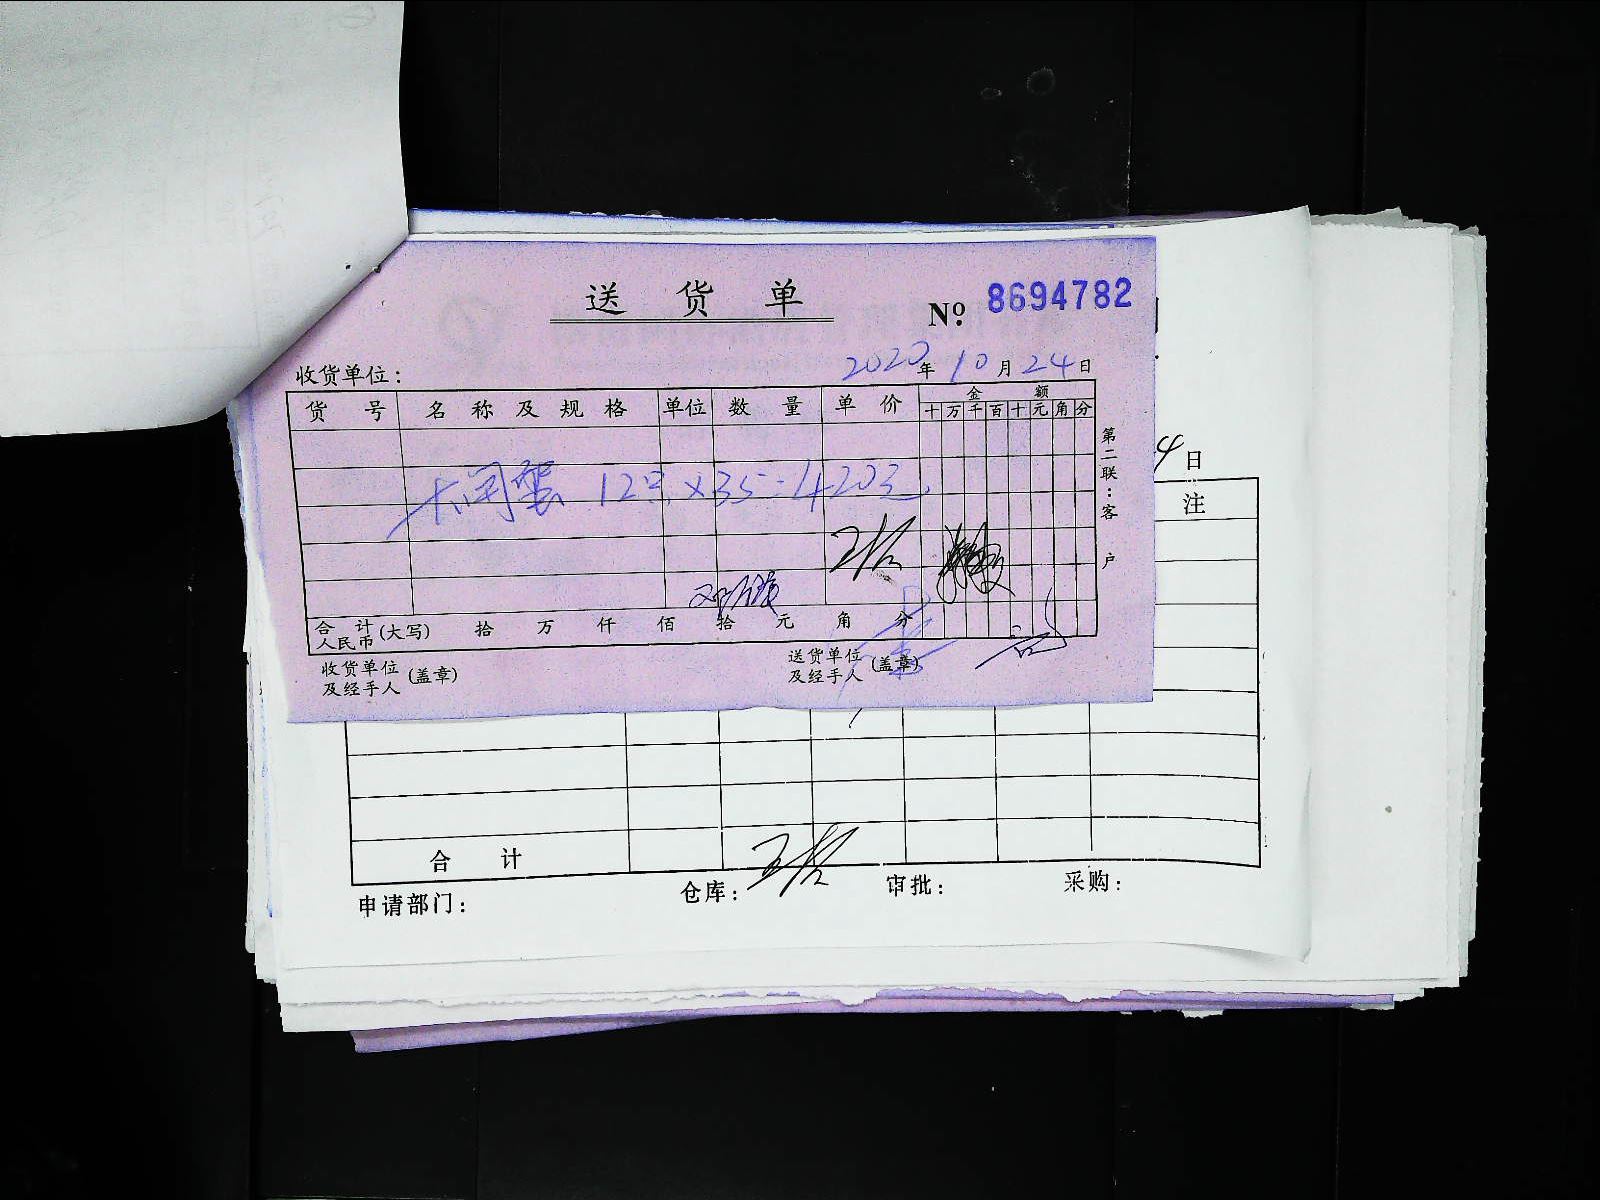 送 货 单
№ 8694782
收货单位： 2020年10月24日
货 号 名 称 及 规 格 单位 数 量 单 价 金 额
十 万 千 百 十 元 角 分
大闸蟹 12只×35=420元
第二联：客户
合 计
人民币 (大写) 拾 万 仟 佰 拾 元 角 分
收货单位
及经手人 (盖章)
送货单位
及经手人 (盖章)
4日
注
合 计
申请部门： 仓库： 审批： 采购：